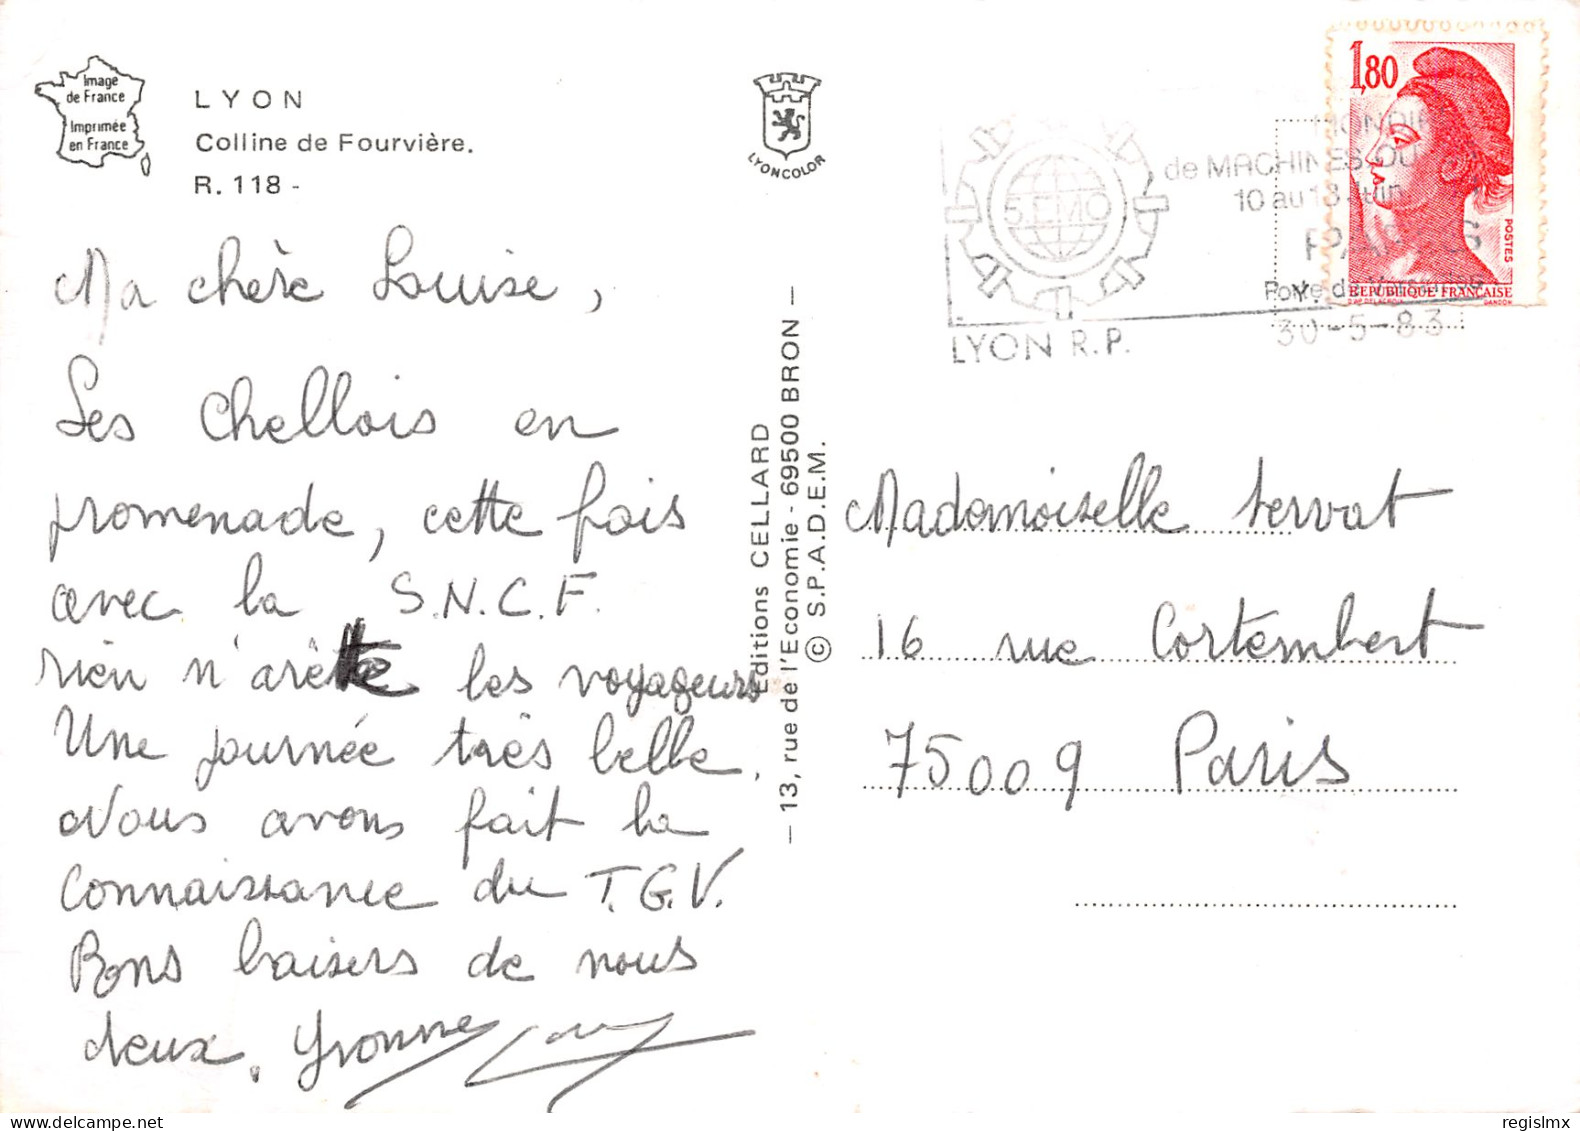 Image
de France
Imprimée
en France
LYON
Colline de Fourvière.
R. 118 -
LYONCOLOR
Ma chère Louise,
Les Chellois en
promenade, cette fois
avec la S.N.C.F.
rien n'arête les voyageurs
Une journée très belle.
Nous avons fait la
connaissance du T.G.V.
Bons baisers de nous
deux. Yvonne
Editions CELLARD
— 13, rue de l'Economie - 69500 BRON —
© S.P.A.D.E.M.
1,80
POSTES
REPUBLIQUE FRANÇAISE
GANDON
5.EMO
de MACHINES OU
10 au 18 Juin
LYON R.P.
30-5-83
Mademoiselle Servat
16 rue Cortembert
75009 Paris
regislmx